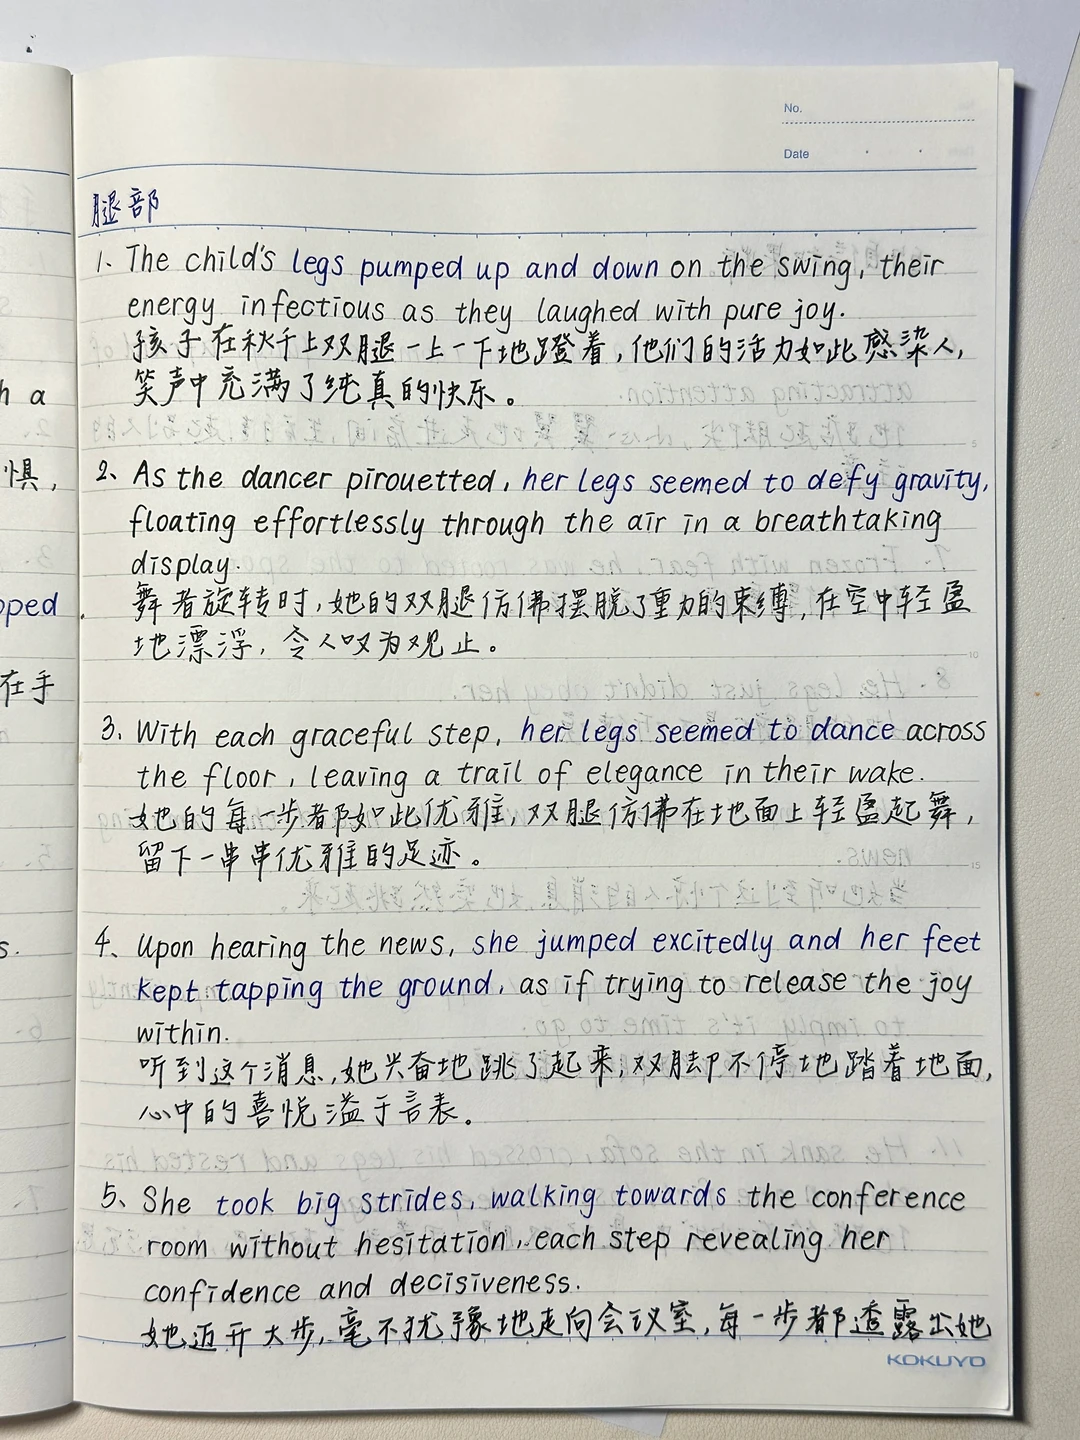 No.
Date
腿部
1、The child's legs pumped up and down on the swing, their
energy infectious as they laughed with pure joy.
孩子在秋千上双腿一上一下地蹬着，他们的活力如此感染人，
笑声中充满了纯真的快乐。
2、As the dancer pirouetted, her legs seemed to defy gravity,
floating effortlessly through the air in a breathtaking
display.
舞者旋转时，她的双腿仿佛摆脱了重力的束缚，在空中轻盈
地漂浮，令人叹为观止。
3、With each graceful step, her legs seemed to dance across
the floor, leaving a trail of elegance in their wake.
她的每一步都如此优雅，双腿仿佛在地面上轻盈起舞，
留下一串串优雅的足迹。
4、Upon hearing the news, she jumped excitedly and her feet
kept tapping the ground, as if trying to release the joy
within.
听到这个消息，她兴奋地跳了起来，双脚不停地踏着地面，
心中的喜悦溢于言表。
5、She took big strides, walking towards the conference
room without hesitation, each step revealing her
confidence and decisiveness.
她迈开大步，毫不犹豫地走向会议室，每一步都透露出她
KOKUYO
h a
惧，
pped
在手
s.